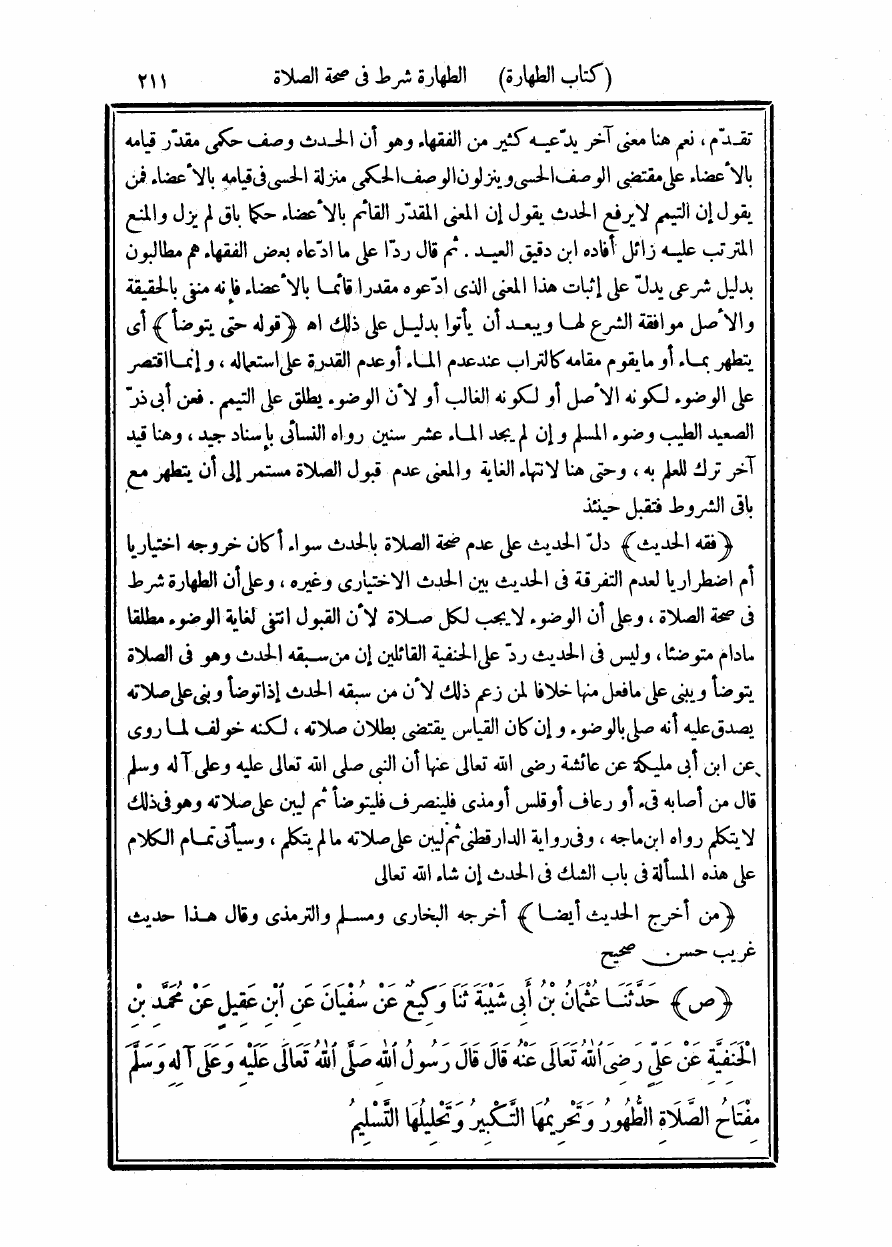 (كتاب الطهارة) الطهارة شرط فى صحة الصلاة ٢١١
تقـدّم، نعم هنا معنى آخر يدّعيـه كثير من الفقهاء وهو أن الحـدث وصف حكمى مقدّر قيامه
بالأعضاء على مقتضى الوصف الحسى وينزلون الوصف الحكمى منزلة الحسى فى قيامه بالأعضاء فمن
يقول إن التيمم لا يرفع الحدث يقول إن المعنى المقدّر القائم بالأعضاء حكما باق لم يزل والمنع
المترتب عليـه زائل أفاده ابن دقيق العيـد . ثم قال ردّا على ما ادّعاه بعض الفقهاء هم مطالبون
بدليل شرعى يدلّ على إثبات هذا المعنى الذى ادّعوه مقدرا قائمـا بالأعضاء فإنه منفى بالحقيقة
والأصل موافقة الشرع لهـا ويبعـد أن يأتوا بدليـل على ذلك اه ﴿قوله حتى يتوضأ﴾ أى
يتطهر بمـاء أو ما يقوم مقامه كالتراب عند عدم المـاء أو عدم القدرة على استعماله ، وإنمـا اقتصر
على الوضوء لكونه الأصل أو لكونه الغالب أو لأن الوضوء يطلق على التيمم . فعن أبى ذرّ
الصعيد الطيب وضوء المسلم وإن لم يجد المـاء عشر سنين رواه النسائى بإسناد جيد ، وهنا قيد
آخر ترك للعلم به ، وحتى هنا لانتهاء الغاية والمعنى عدم قبول الصلاة مستمر إلى أن يتطهر مع
باقى الشروط فتقبل حينئذ
﴿فقه الحديث﴾ دلّ الحديث على عدم صحة الصلاة بالحدث سواء أكان خروجه اختياريا
أم اضطراريا لعدم التفرقة فى الحديث بين الحدث الاختيارى وغيره ، وعلى أن الطهارة شرط
فى صحة الصلاة ، وعلى أن الوضوء لا يجب لكل صـلاة لأن القبول انتفى لغاية الوضوء مطلقا
مادام متوضئا ، وليس فى الحديث ردّ على الحنفية القائلين إن من سـبقه الحدث وهو فى الصلاة
يتوضأ ويبنى على ما فعل منها خلافا لمن زعم ذلك لأن من سبقه الحدث إذا توضأ وبنى على صلاته
يصدق عليه أنه صلى بالوضوء وإن كان القياس يقتضى بطلان صلاته ، لكنه خولف لمـا روى
عن ابن أبى مليكة عن عائشة رضى الله تعالى عنها أن النبى صلى الله تعالى عليه وعلى آله وسلم
قال من أصابه قىء أو رعاف أو قلس أو مذى فلينصرف فليتوضأ ثم ليبن على صلاته وهو فى ذلك
لا يتكلم رواه ابن ماجه ، وفى رواية الدارقطنى ثم ليبن على صلاته ما لم يتكلم ، وسيأتى تمـام الكلام
على هذه المسألة فى باب الشك فى الحدث إن شاء الله تعالى
﴿من أخرج الحديث أيضـا﴾ أخرجه البخارى ومسـلم والترمذى وقال هـذا حديث
غريب حسن صحيح
﴿ص﴾ حَدَّثَنَـا عُثْمَانُ بْنُ أَبِى شَيْبَةَ ثَنَا وَكِيعٌ عَنْ سُفْيَانَ عَنِ ابْنِ عَقِيلٍ عَنْ مُحَمَّدِ بْنِ
الْحَنَفِيَّةِ عَنْ عَلِىٍّ رَضِىَ اللهُ تَعَالَى عَنْهُ قَالَ قَالَ رَسُولُ اللهِ صَلَّى اللهُ تَعَالَى عَلَيْهِ وَعَلَى آلِهِ وَسَلَّمَ
مِفْتَاحُ الصَّلَاةِ الطُّهُورُ وَتَحْرِيمُهَا التَّكْبِيرُ وَتَحْلِيلُهَا التَّسْلِيمُ